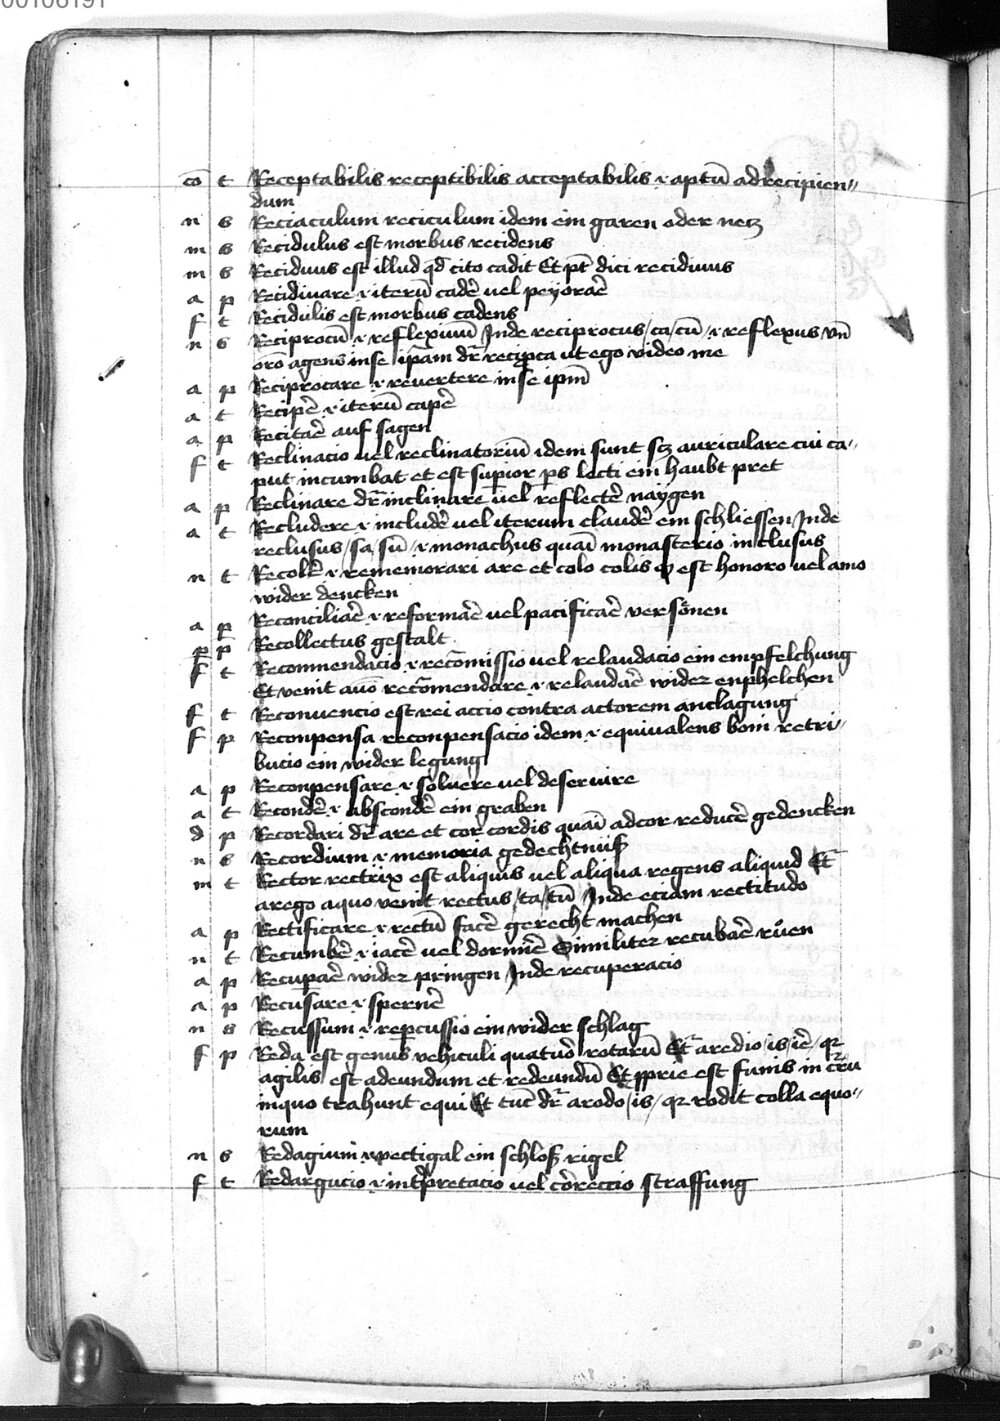 00106191
co t Receptabilis receptibilis acceptabilis .i. aptū ad recipien〃
dum
n s Reciaculum reciculum idem ein garen oder netz
m s Recidulus est morbus recidens
m s Recidiuus est illud qd̄ cito cadit Et pt̄ dici recidiuus
a p Recidiuare .i. iterū cadē uel peyorarē
f t Recidulis est morbus cadens
n s Reciprocū .i. reflexiuū Inde reciprocus / ca / cū / .i. reflexus vn̄
orō agens in se ip̄am dr̄ recip̄ca ut ego video me
a p Reciprocare .i. reuertere in se ip̄m
a t Recipē .i. iterū capē
a p Recitarē auf sagen
f t Reclinacio uel reclinatoriū idem sunt scz auriculare cui ca〃
put incumbat et est sup̄ior ps̄ lecti ein haubt pret
a p Reclinare dr̄ inclinare uel reflectē naygen
a t Recludere .i. includē uel iterum claudē ein schliessen Inde
reclusus / sa / sū / .i. monachus quasi monasterio inclusus
n t Recolē .i. rememorari a re et colo colis qd est honoro uel amo
wider dencken
a p Reconciliarē .i. reformarē uel pacificarē versönen
p p Recollectus gestalt
f t Recommendacio .i. recōmissio uel relaudacio ein empfelchung
Et venit a uō recōmendare .i. relaudarē wider enphelchen
f t Reconuencio est rei accio contra actorem anclagung
f p Reconpensa reconpensacio idem .i. equiualens boni retri〃
bucio ein wider legung
a p Reconpensare .i. soluere uel deseruire
a t Recondē .i. abscondē ein graben
d p Recordari dr̄ a re et cor cordis quasi ad cor reducē gedencken
n s Recordium .i. memoria gedechtnüß
m t Rector rectrix est aliquis uel aliqua regens aliquid Et
a rego a quo venit rectus / ta / tū Inde eciam rectitudo
a p Rectificare .i. rectū facē gerecht machen
n t Recumbē .i. iacē uel dormirē Similiter recubarē rüen
a p Recup̄arē wider pringen Inde recuperacio
a p Recusare .i. spernē
n s Recussum .i. rep̄cussio ein wider schlag
f p Reda est genus vehiculi quatuor̄ rotarū Et a redio / is / ire / qr
agilis est ad eundum et redeundū Et p̄prie est funis in c̄rru
in quo trahunt equi Et tūc dr̄ a rodo / is / qr rodit colla equo〃
rum
n s Redagium .i. vectigal ein schloß rigel
f t Redargucio .i. int̄pretacio uel cōreccio straffung